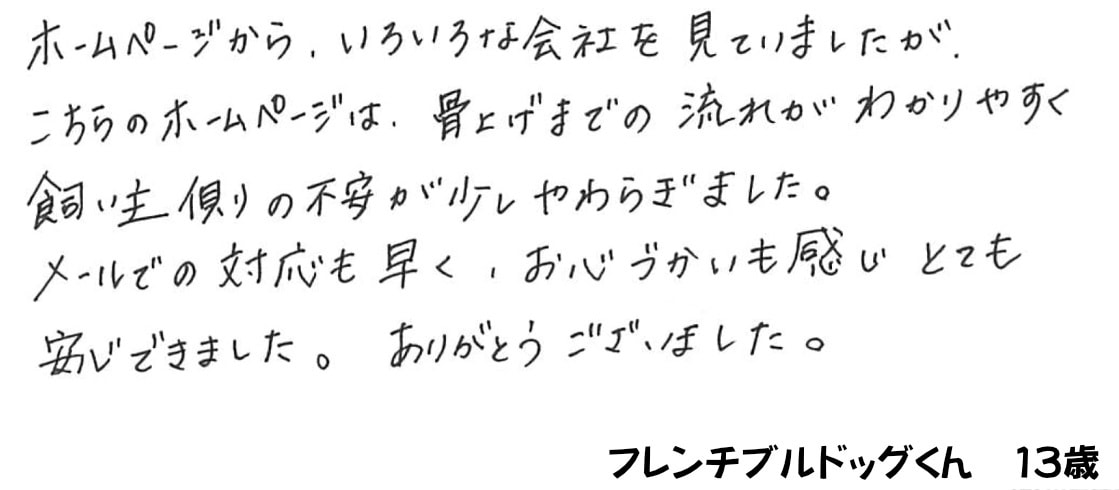 ホームページから、いろいろな会社を見ていましたが、
こちらのホームページは、骨上げまでの流れがわかりやすく
飼い主側の不安が少しやわらぎました。
メールでの対応も早く、お心づかいも感じとても
安心できました。ありがとうございました。
フレンチブルドッグくん　13歳